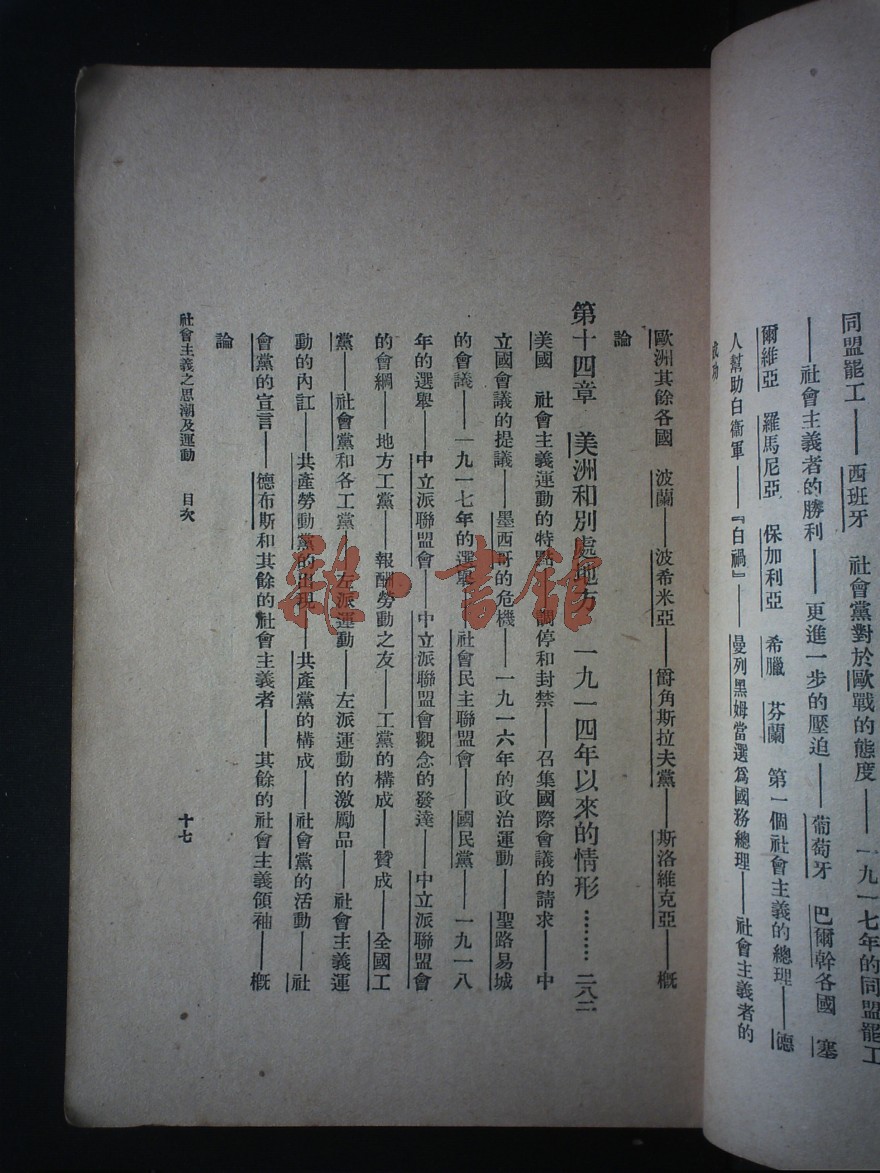 同盟罷工——西班牙　社會黨對於歐戰的態度——一九一七年的同盟罷工
——社會主義者的勝利——更進一步的壓迫——葡萄牙　巴爾幹各國　塞
爾維亞　羅馬尼亞　保加利亞　希臘　芬蘭　第一個社會主義的總理——德
人幫助白衞軍——『白禍』——曼列黑姆當選爲國務總理——社會主義者的
成功
歐洲其餘各國　波蘭——波希米亞——爵角斯拉夫黨——斯洛維克亞——概
論
第十四章　美洲和別處地方　一九一四年以來的情形………二八二
美國　社會主義運動的特點——調停和封禁——召集國際會議的請求——中
立國會議的提議——墨西哥的危機——一九一六年的政治運動——聖路易城
的會議——一九一七年的選舉——社會民主聯盟會——國民黨——一九一八
年的選舉——中立派聯盟會——中立派聯盟會觀念的發達——中立派聯盟會
的會綱——地方工黨——報酬勞動之友——工黨的構成——贊成——全國工
黨——社會黨和各工黨——左派運動——左派運動的激勵品——社會主義運
動的內訌——共產勞動黨的出現——共產黨的構成——社會黨的活動——社
會黨的宣言——德布斯和其餘的社會主義者——其餘的社會主義領袖——概
論
社會主義之思潮及運動　目次
十七
雜·書館